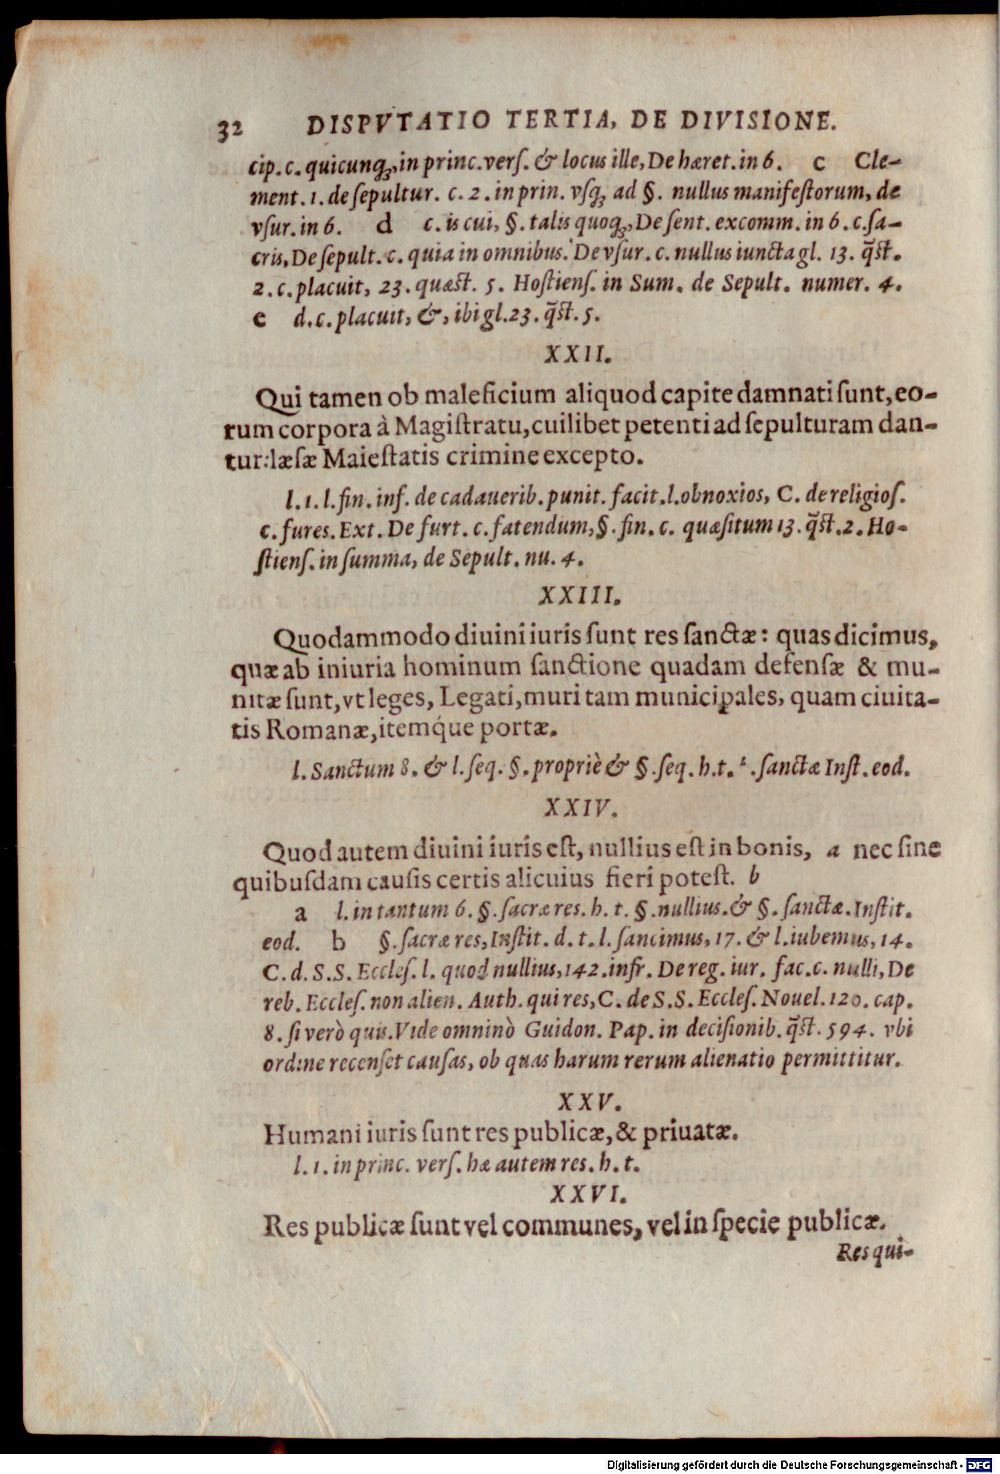 32 DISPVTATIO TERTIA, DE DIVISIONE.
cip. c. quicunq́ꝫ, in princ. verſ. & locus ille, De hæret. in 6. c Cle-
ment. 1. de ſepultur. c. 2. in prin. vſqꝫ ad §. nullus manifeſtorum, de
vſur. in 6. d c. is cui, §. talis quoqꝫ, De ſent. excomm. in 6. c. ſa-
cris, De ſepult. c. quia in omnibus. De vſur. c. nullus iuncta gl. 13. q̃ſt.
2. c. placuit, 23. quæſt. 5. Hoſtienſ. in Sum. de Sepult. numer. 4.
e d. c. placuit, &, ibi gl. 23. q̃ſt. 5.
XXII.
Qui tamen ob maleficium aliquod capite damnati ſunt, eo-
rum corpora à Magiſtratu, cuilibet petenti ad ſepulturam dan-
tur: læſæ Maieſtatis crimine excepto.
l. 1. l. fin. inf. de cadauerib. punit. facit. l. obnoxios, C. de religioſ.
c. fures. Ext. De furt. c. fatendum, §. fin. c. quæſitum 13. q̃ſt. 2. Ho-
ſtienſ. in ſumma, de Sepult. nu. 4.
XXIII.
Quodammodo diuini iuris ſunt res ſanctæ: quas dicimus,
quæ ab iniuria hominum ſanctione quadam defenſæ & mu-
nitæ ſunt, vt leges, Legati, muri tam municipales, quam ciuita-
tis Romanæ, itemq́ue portæ.
l. Sanctum 8. & l. ſeq. §. propriè & §. ſeq. h. t. §. ſanctæ Inſt. eod.
XXIV.
Quod autem diuini iuris eſt, nullius eſt in bonis, a nec ſine
quibuſdam cauſis certis alicuius fieri poteſt. b
a l. in tantum 6. §. ſacræ res. h. t. §. nullius. & §. ſanctæ. Inſtit.
eod. b §. ſacræ res, Inſtit. d. t. l. ſancimus, 17. & l. iubemus, 14.
C. d. S. S. Eccleſ. l. quod nullius, 142. infr. De reg. iur. fac. c. nulli, De
reb. Eccleſ. non alien. Auth. qui res, C. de S. S. Eccleſ. Nouel. 120. cap.
8. ſi verò quis. Vide omninò Guidon. Pap. in deciſionib. q̃ſt. 594. vbi
ordine recenſet cauſas, ob quas harum rerum alienatio permittitur.
XXV.
Humani iuris ſunt res publicæ, & priuatæ.
l. 1. in princ. verſ. hæ autem res. h. t.
XXVI.
Res publicæ ſunt vel communes, vel in ſpecie publicæ.
Res qui-
Digitalisierung gefördert durch die Deutsche Forschungsgemeinschaft - DFG